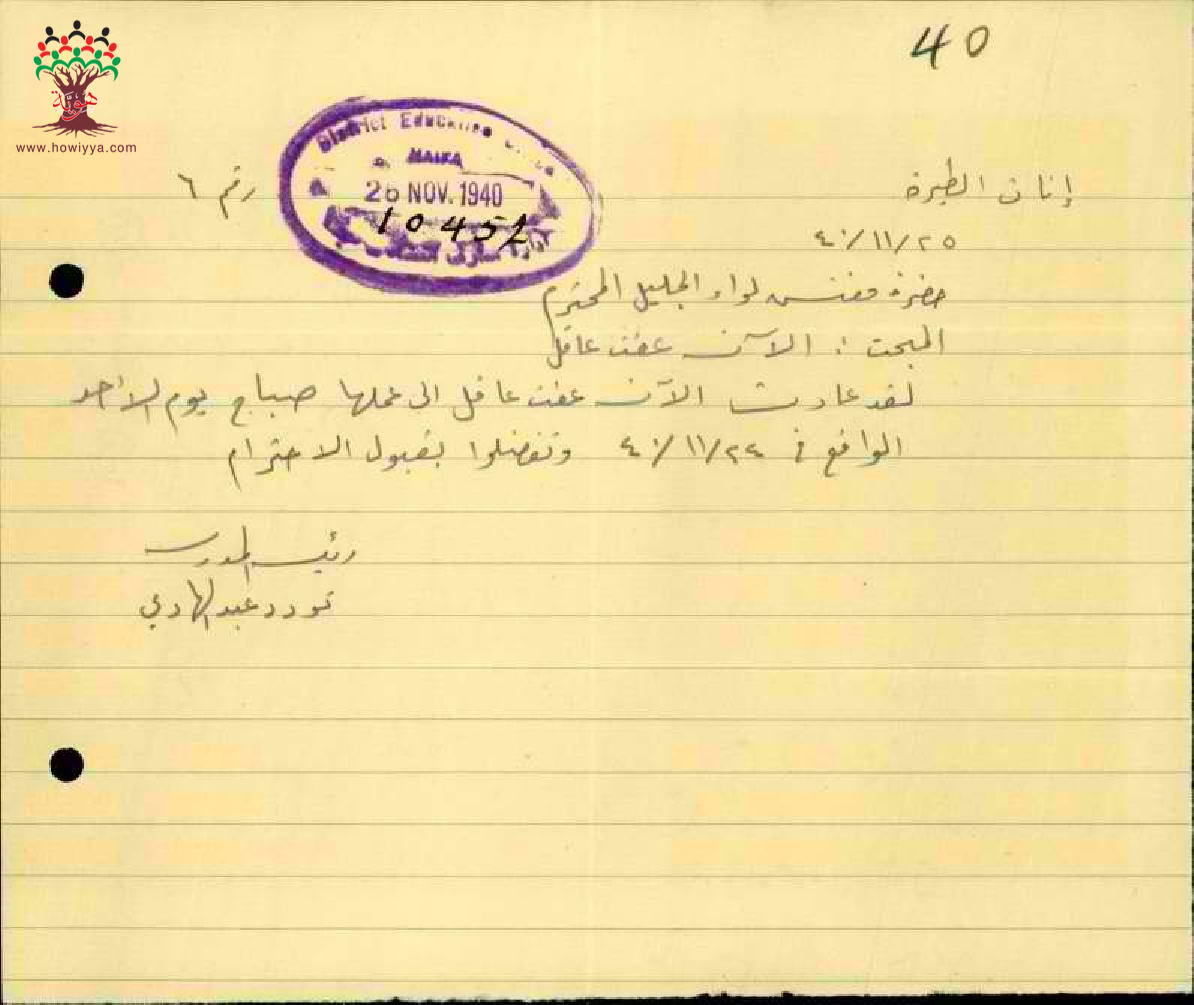 40
هوية
www.howiyya.com
District Education
HAIFA
26 NOV. 1940
10452
إناث الطيرة
رقم ٦
٤٠/١١/٢٥
حضرة مفتش لواء الجليل المحترم
المبحث : الآنسة عفت عاقل
لقد عادت الآنسة عفت عاقل الى عملها صباح يوم الاحد
الواقع في ٤٠/١١/٢٤ وتفضلوا بقبول الاحترام
رئيسة المدرسة
تودد عبد الهادي